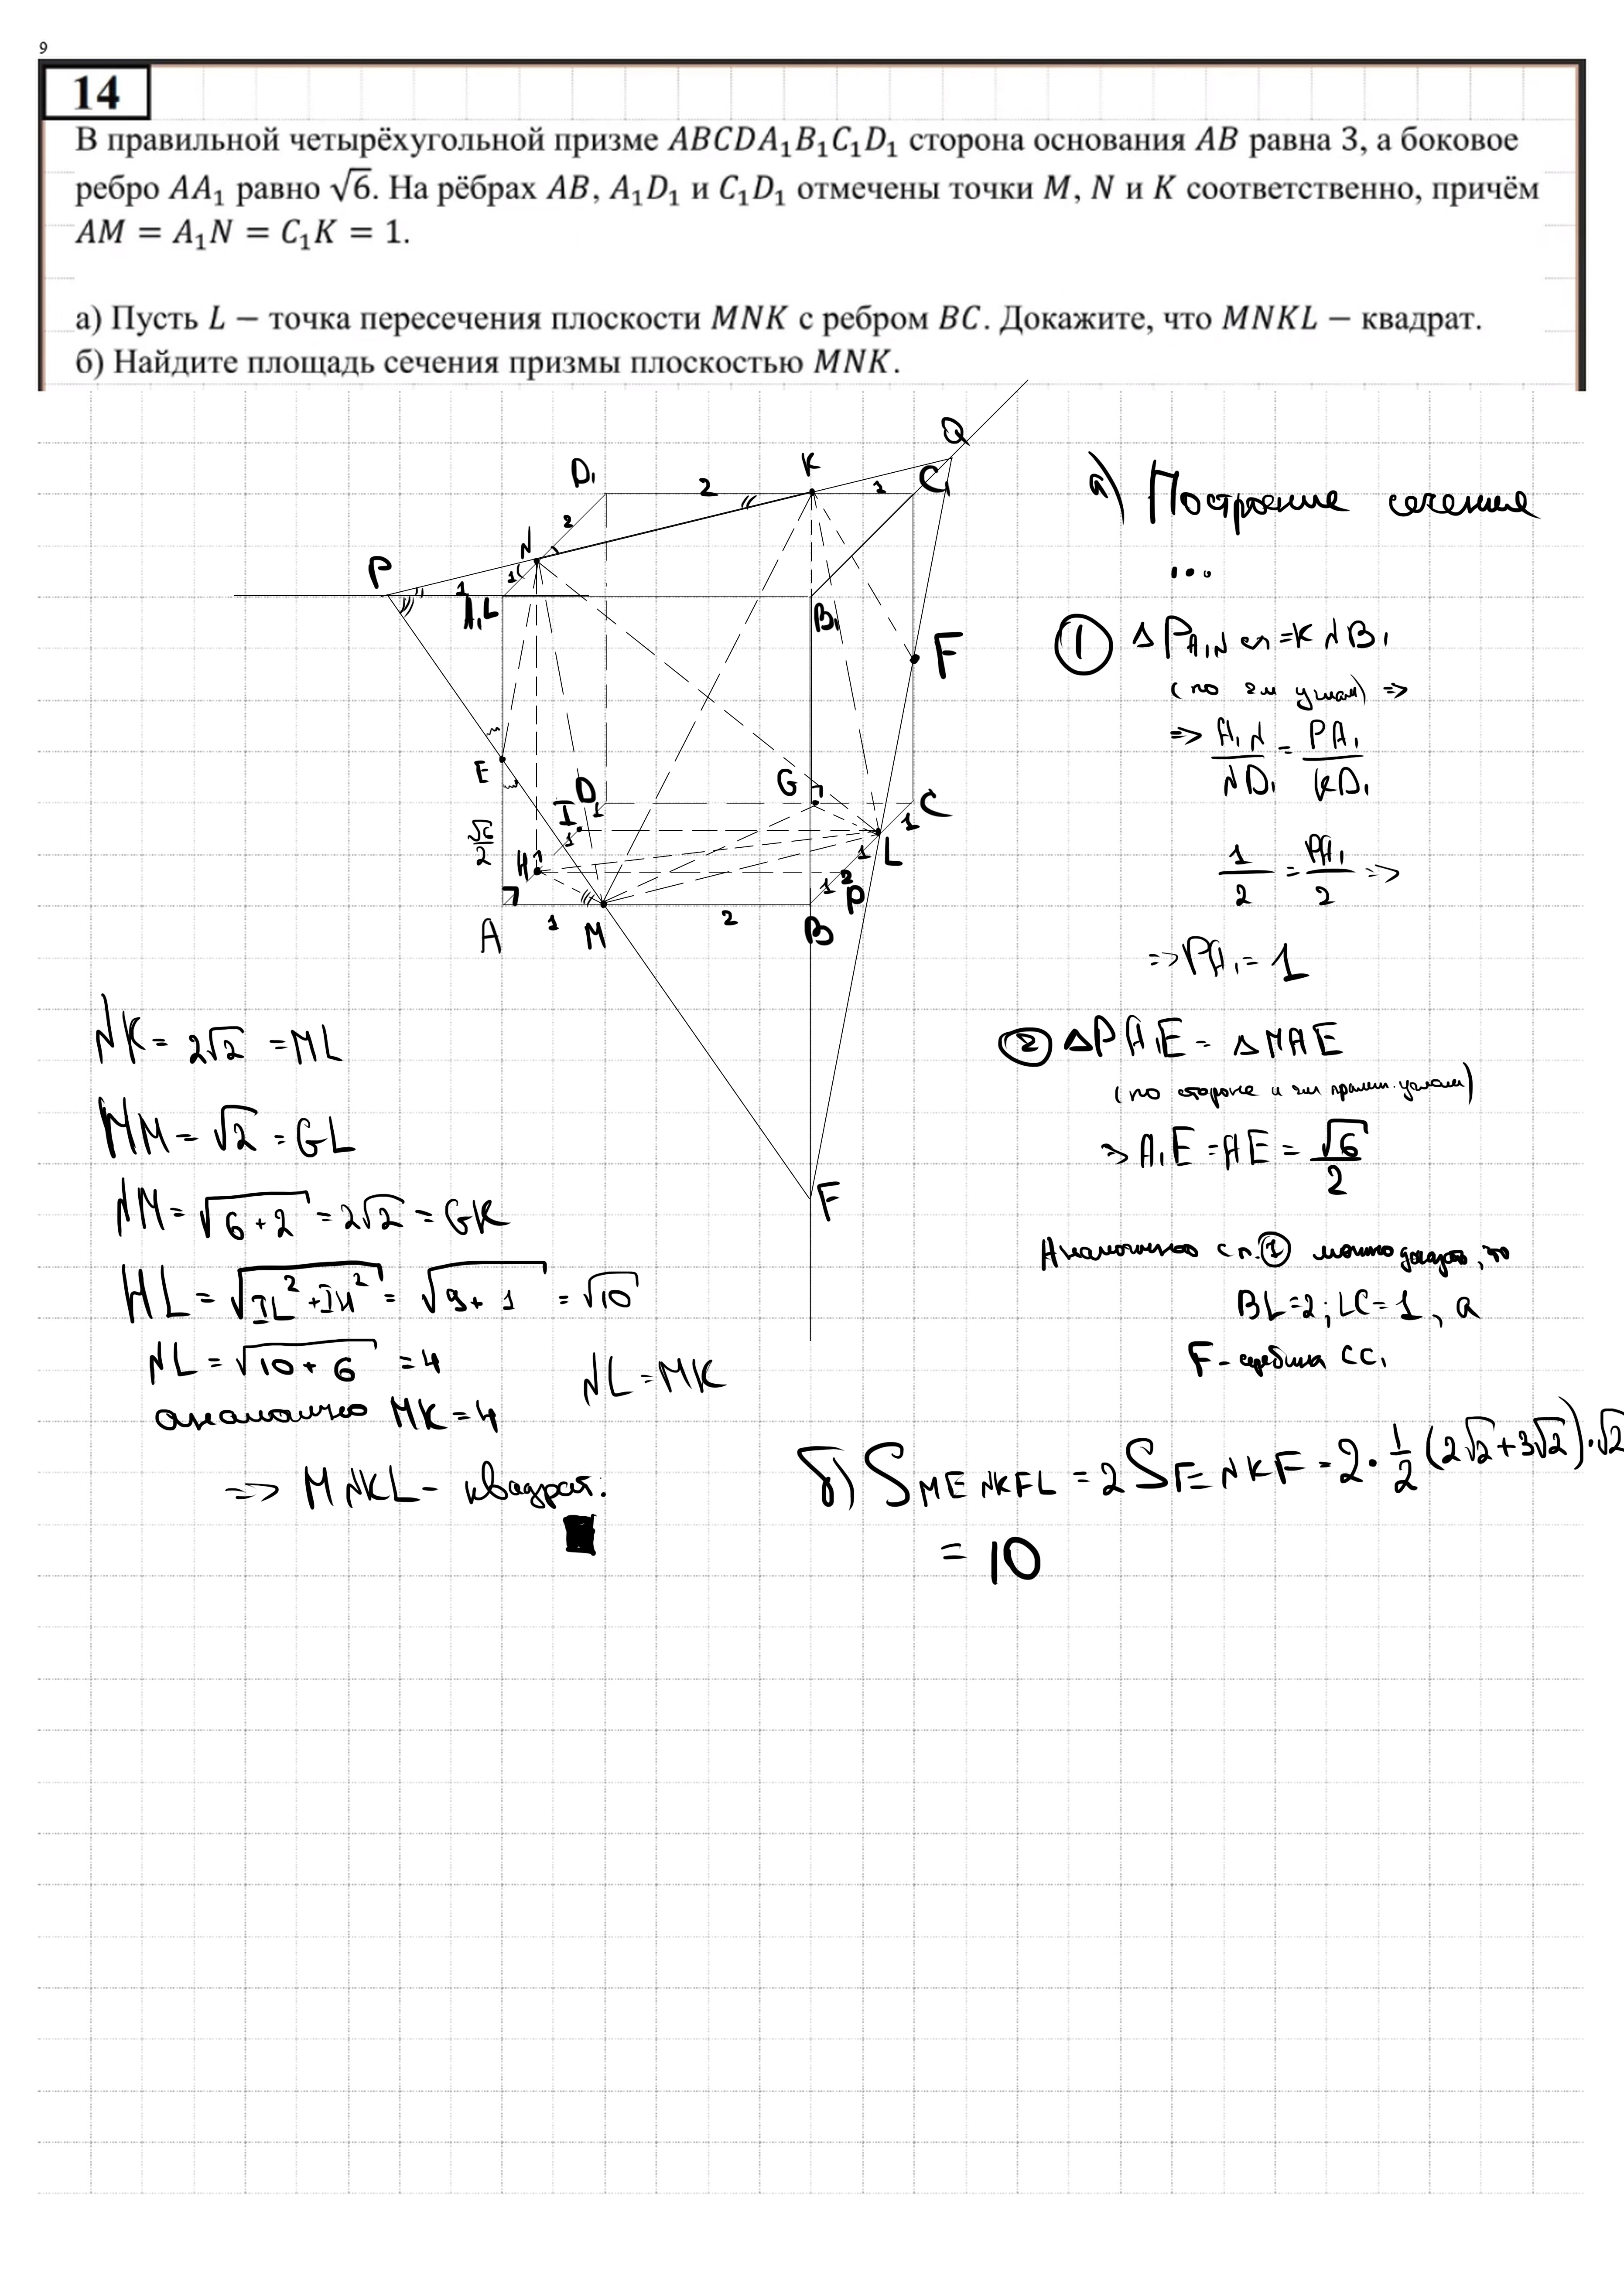 9
14
В правильной четырёхугольной призме ABCDA₁B₁C₁D₁ сторона основания AB равна 3, а боковое
ребро AA₁ равно √6. На рёбрах AB, A₁D₁ и C₁D₁ отмечены точки M, N и K соответственно, причём
AM = A₁N = C₁K = 1.
а) Пусть L – точка пересечения плоскости MNK с ребром BC. Докажите, что MNKL – квадрат.
б) Найдите площадь сечения призмы плоскостью MNK.
Q
D₁ 2 K 1 C₁
2
N
P 1 1
A₁L B₁
F
E
I D 1 G C
√6/2 1 1
H 1 L
1 2 P
A 1 M 2 B
F
а) Построение сечения
...
① ∆PA₁N ∾ =KNB₁
(по 2м углам) =>
=> A₁N/ND₁ = PA₁/KD₁
1/2 = PA₁/2 =>
=> PA₁ = 1
② ∆PA₁E = ∆MAE
(по стороне и 2м прилеж. углам)
=> A₁E = AE = √6/2
Аналогично с п.① можно доказать, что
BL=2; LC=1, а
F - середина CC₁
NK = 2√2 = ML
MM = √2 = GL
NM = √(6+2) = 2√2 = GK
HL = √(IL²+IH²) = √(9+1) = √10
NL = √(10+6) = 4
NL = MK
аналогично MK = 4
=> MNKL - квадрат.
б) S MENKFL = 2 S FENKF = 2 · 1/2 (2√2+3√2)·√2
= 10